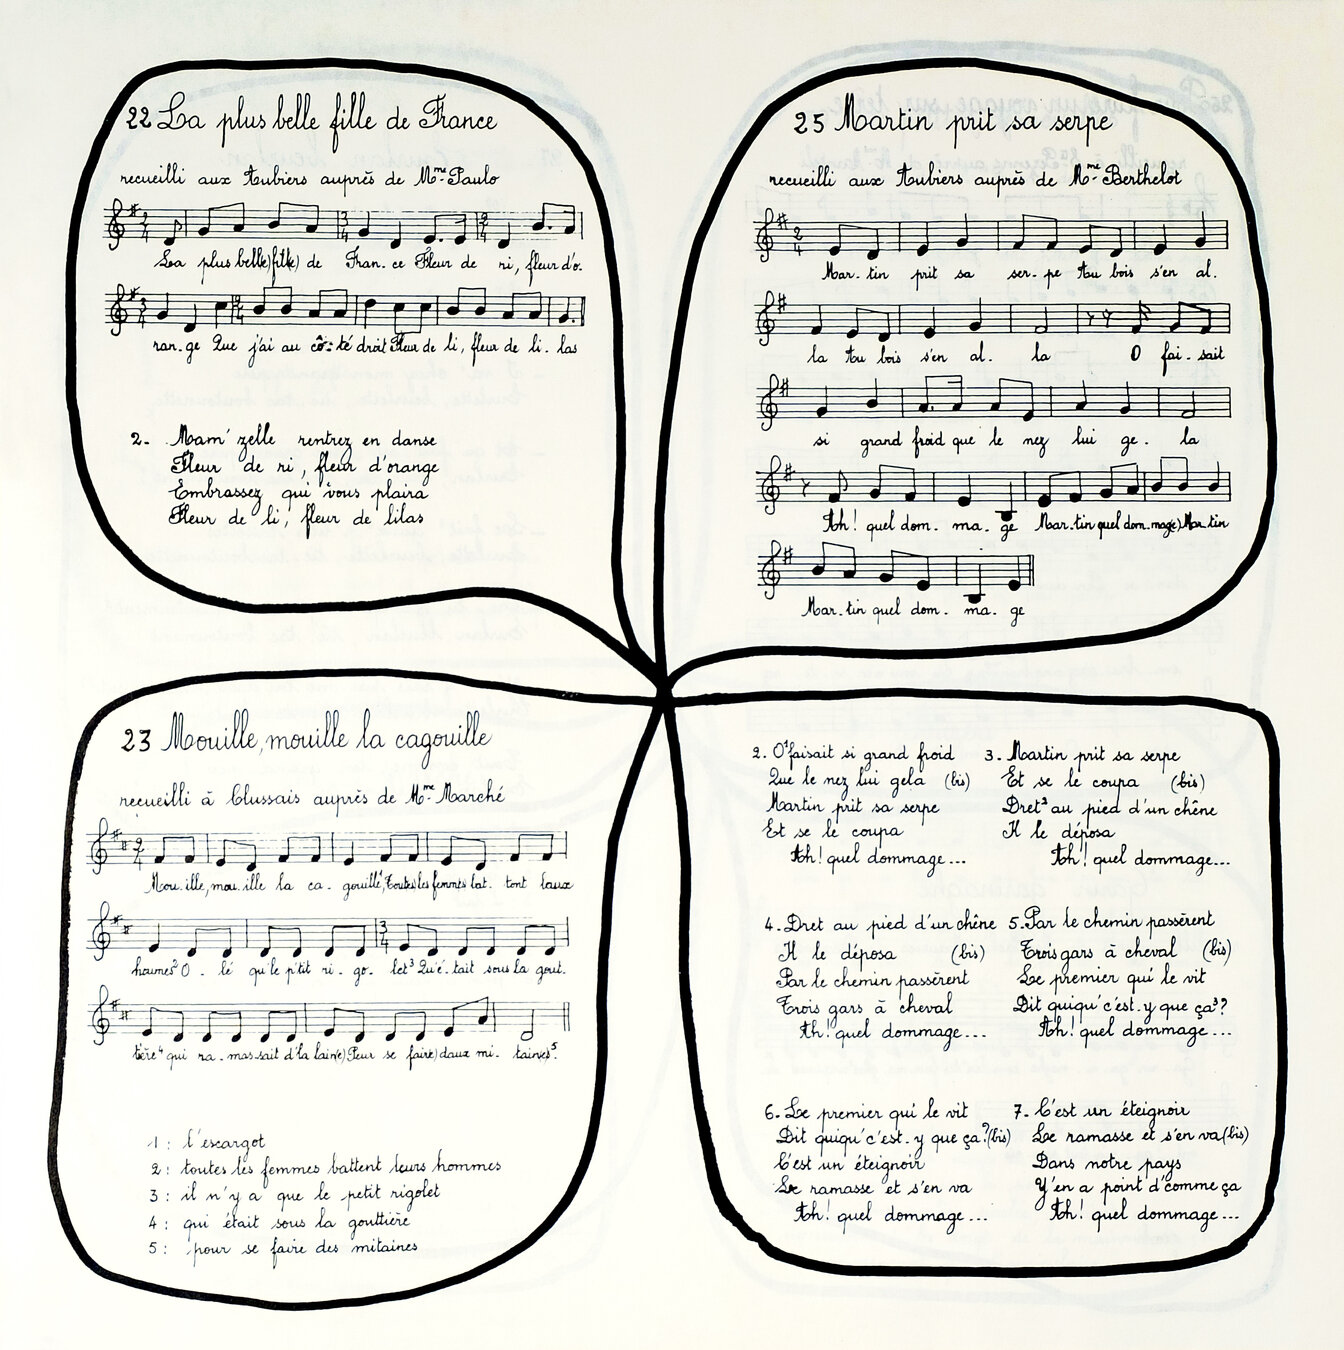 22 La plus belle fille de France
recueilli aux Aubiers auprès de Mme Paulo
La plus belle) fill(e) de Fran. ce Fleur de ri, fleur d'o.
ran. ge Que j'ai au cô. té droit Fleur de li, fleur de li. las
2. Mam' zelle rentrez en danse
Fleur de ri, fleur d'orange
Embrassez qui vous plaira
Fleur de li, fleur de lilas
25 Martin prit sa serpe
recueilli aux Aubiers auprès de Mme Berthelot
Mar. tin prit sa ser. pe Au bois s'en al.
la Au bois s'en al. la O fai. sait
si grand froid que le nez lui ge. la
Ah! quel dom. ma. ge Mar. tin quel dom. mag(e) Mar. tin
Mar. tin quel dom. ma. ge
23 Mouille, mouille la cagouille
recueilli à Clussais auprès de Mme Marché
Mou. ille, mou. ille la ca. gouille1, Toutes les femmes bat. tont laux
houmes2 O. lé qu'le p'tit ri. go. let3 Qu'é. tait sous la gout.
tère4 qui ra. mas. sait d'la lain(e) Pour se fair(e) daux mi. tain(es)5.
1 : l'escargot
2 : toutes les femmes battent leurs hommes
3 : il n'y a que le petit rigolet
4 : qui était sous la gouttière
5 : pour se faire des mitaines
2. O1 faisait si grand froid
Que le nez lui gela (bis)
Martin prit sa serpe
Et se le coupa
Ah! quel dommage...
3. Martin prit sa serpe
Et se le coupa (bis)
Dret2 au pied d'un chêne
Il le déposa
Ah! quel dommage...
4. Dret au pied d'un chêne
Il le déposa (bis)
Par le chemin passèrent
Trois gars à cheval
Ah! quel dommage...
5. Par le chemin passèrent
Trois gars à cheval (bis)
Le premier qui le vit
Dit quiqu'c'est. y que ça3?
Ah! quel dommage...
6. Le premier qui le vit
Dit quiqu'c'est. y que ça? (bis)
C'est un éteignoir
Le ramasse et s'en va
Ah! quel dommage...
7. C'est un éteignoir
Le ramasse et s'en va (bis)
Dans notre pays
Y'en a point d'comme ça
Ah! quel dommage...